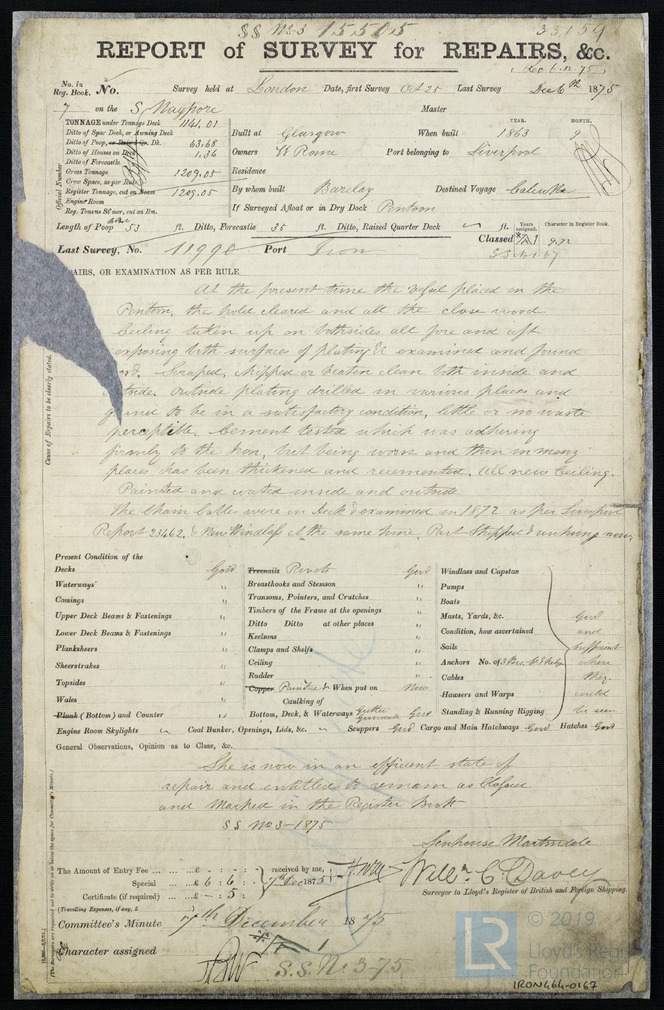 SS No 3 15505 33159
REPORT of SURVEY for REPAIRS, &c.
Rec 6.12.75
No. in Reg. Book. No. Survey held at London Date, first Survey Oct 25 Last Survey Dec 6th 1875
7 on the S Nagpore Master
TONNAGE under Tonnage Deck 1141.01
Ditto of Spar Deck, or Awning Deck
Ditto of Poop, or Raised Qr. Dk. 63.68
Ditto of Houses on Dk 1.36
Ditto of Forecastle
Gross Tonnage 1209.05
Crew Space, as per Rule
Register Tonnage, cut on Beam 1209.05
Engine Room
Reg. Tonnage Steamer, cut on Bm.
Official Number
YEAR. MONTH.
Built at Glasgow When built 1863 9
Owners Port belonging to Liverpool
Residence
By whom built Barclay Destined Voyage Calcutta
If Surveyed Afloat or in Dry Dock Pontoon
Length of Poop 53 ft. Ditto, Forecastle 35 ft. Ditto, Raised Quarter Deck ft.
Years assigned. Character in Register Book.
Last Survey, No. 11990 Port Iron Classed A1 9.72
AIRS, OR EXAMINATION AS PER RULE
At the present time the Vessel placed on the
Pontoon, the hold cleared and all the close wood
Ceiling taken up on both sides all fore and aft
exposing both surfaces of plating &c examined and found
Scraped, chipped or beaten clean both inside and
outside. Outside plating drilled in various places and
found to be in a satisfactory condition, little or no waste
perceptible. Cement tested which was adhering
firmly to the Iron, but being worn and thin in many
places has been thickened and recemented. All new Ceiling.
Painted and coated inside and outside
The Chain Cables were on Deck & examined in 1872 as per Liverpool
Report 23462, & New Windlass at the same time. Part Shipped & unhung now
Cause of Repairs to be clearly stated.
Present Condition of the
Decks Good
Waterways "
Comings "
Upper Deck Beams & Fastenings "
Lower Deck Beams & Fastenings "
Planksheers "
Sheerstrakes "
Topsides "
Wales "
Plank (Bottom) and Counter "
Treenails Rivets Good
Breasthooks and Stemson "
Transoms, Pointers, and Crutches "
Timbers of the Frame at the openings "
Ditto Ditto at other places "
Keelsons "
Clamps and Shelfs "
Ceiling "
Rudder "
Copper Painted When put on Now
Caulking of
Bottom, Deck, & Waterways Good
Windlass and Capstan
Pumps
Boats
Masts, Yards, &c. Good
Condition, how ascertained and
Sails sufficient
Anchors No. of where
Cables they
Hawsers and Warps could
Standing & Running Rigging be seen
Engine Room Skylights Coal Bunker, Openings, Lids, &c. Scuppers Good Cargo and Main Hatchways Good Hatches Good
General Observations, Opinion as to Class, &c.
She is now in an efficient state of
repair and entitled to remain as Classed
and Marked in the Register Book
SS No 3-1875
Senhouse Martindale
The Amount of Entry Fee ... ... £ : : received by me,
Special ... ... £ 6 : 6 : 7th Dec 1875
Certificate (if required) ... - : 5 :
(Travelling Expenses, if any, £
Willm. C. Davey
Surveyor to Lloyd's Register of British and Foreign Shipping.
Committee's Minute 7th December 1875
Character assigned A 1
S.S. No 3-75
LR
© 2019
Lloyd's Regis
Foundation
IRON464-0167